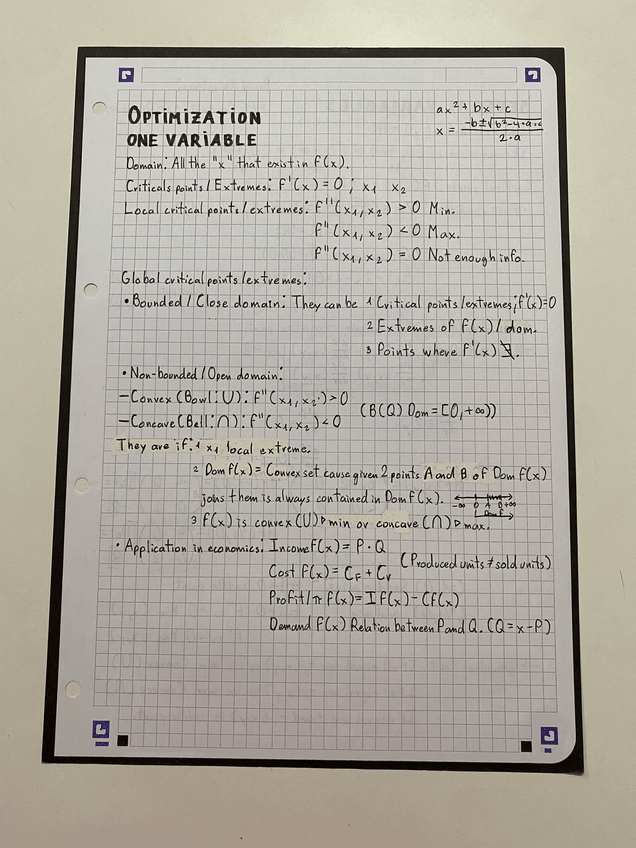 OPTIMIZATION
ONE VARIABLE
ax² + bx + c
x = -b±√b²-4·a·c
2·a
Domain: All the "x" that exist in f(x).
Criticals points/Extremes: F'(x) = 0 ; x₁ x₂
Local critical points/extremes: F''(x₁, x₂) > 0 Min.
F''(x₁, x₂) < 0 Max.
F''(x₁, x₂) = 0 Not enough info.
Global critical points/extremes:
• Bounded/Close domain: They can be 1 Critical points/extremes; f'(x)=0
2 Extremes of f(x)/dom.
3 Points where F'(x) ∄.
• Non-bounded/Open domain:
– Convex (Bowl: U): F''(x₁, x₂) > 0
– Concave (Bell: ∩): F''(x₁, x₂) < 0
(B(Q) Dom = [0, +∞))
They are if: 1 x₁ local extreme.
2 Dom f(x) = Convex set cause given 2 points A and B of Dom f(x)
joins them is always contained in Dom f(x).
-∞ 0 A B +∞
Dom f
3 f(x) is convex (U) ▷ min or concave (∩) ▷ max.
• Application in economics: Income f(x) = P · Q
Cost f(x) = CF + CV
(Produced units ≠ sold units)
Profit/π f(x) = I f(x) - C f(x)
Demand f(x) Relation between P and Q. (Q = x - P)